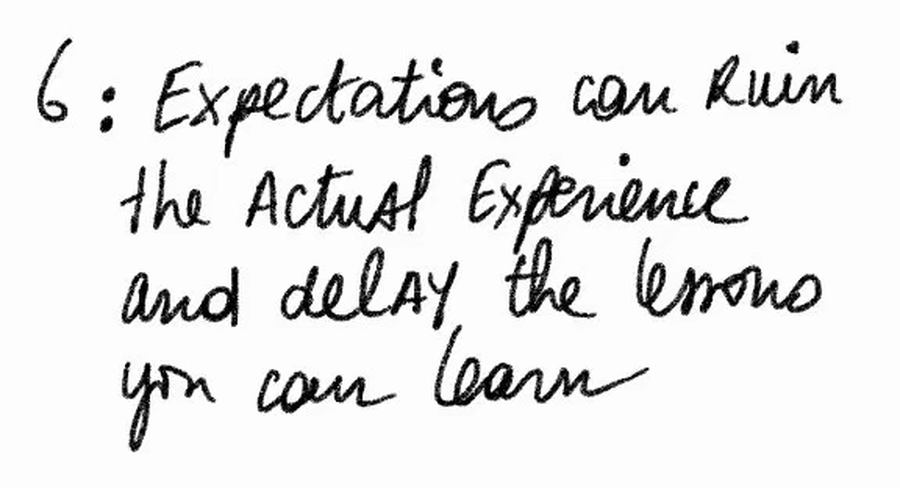 6: Expectations can Ruin
the Actual Experience
and delay the lessons
you can learn